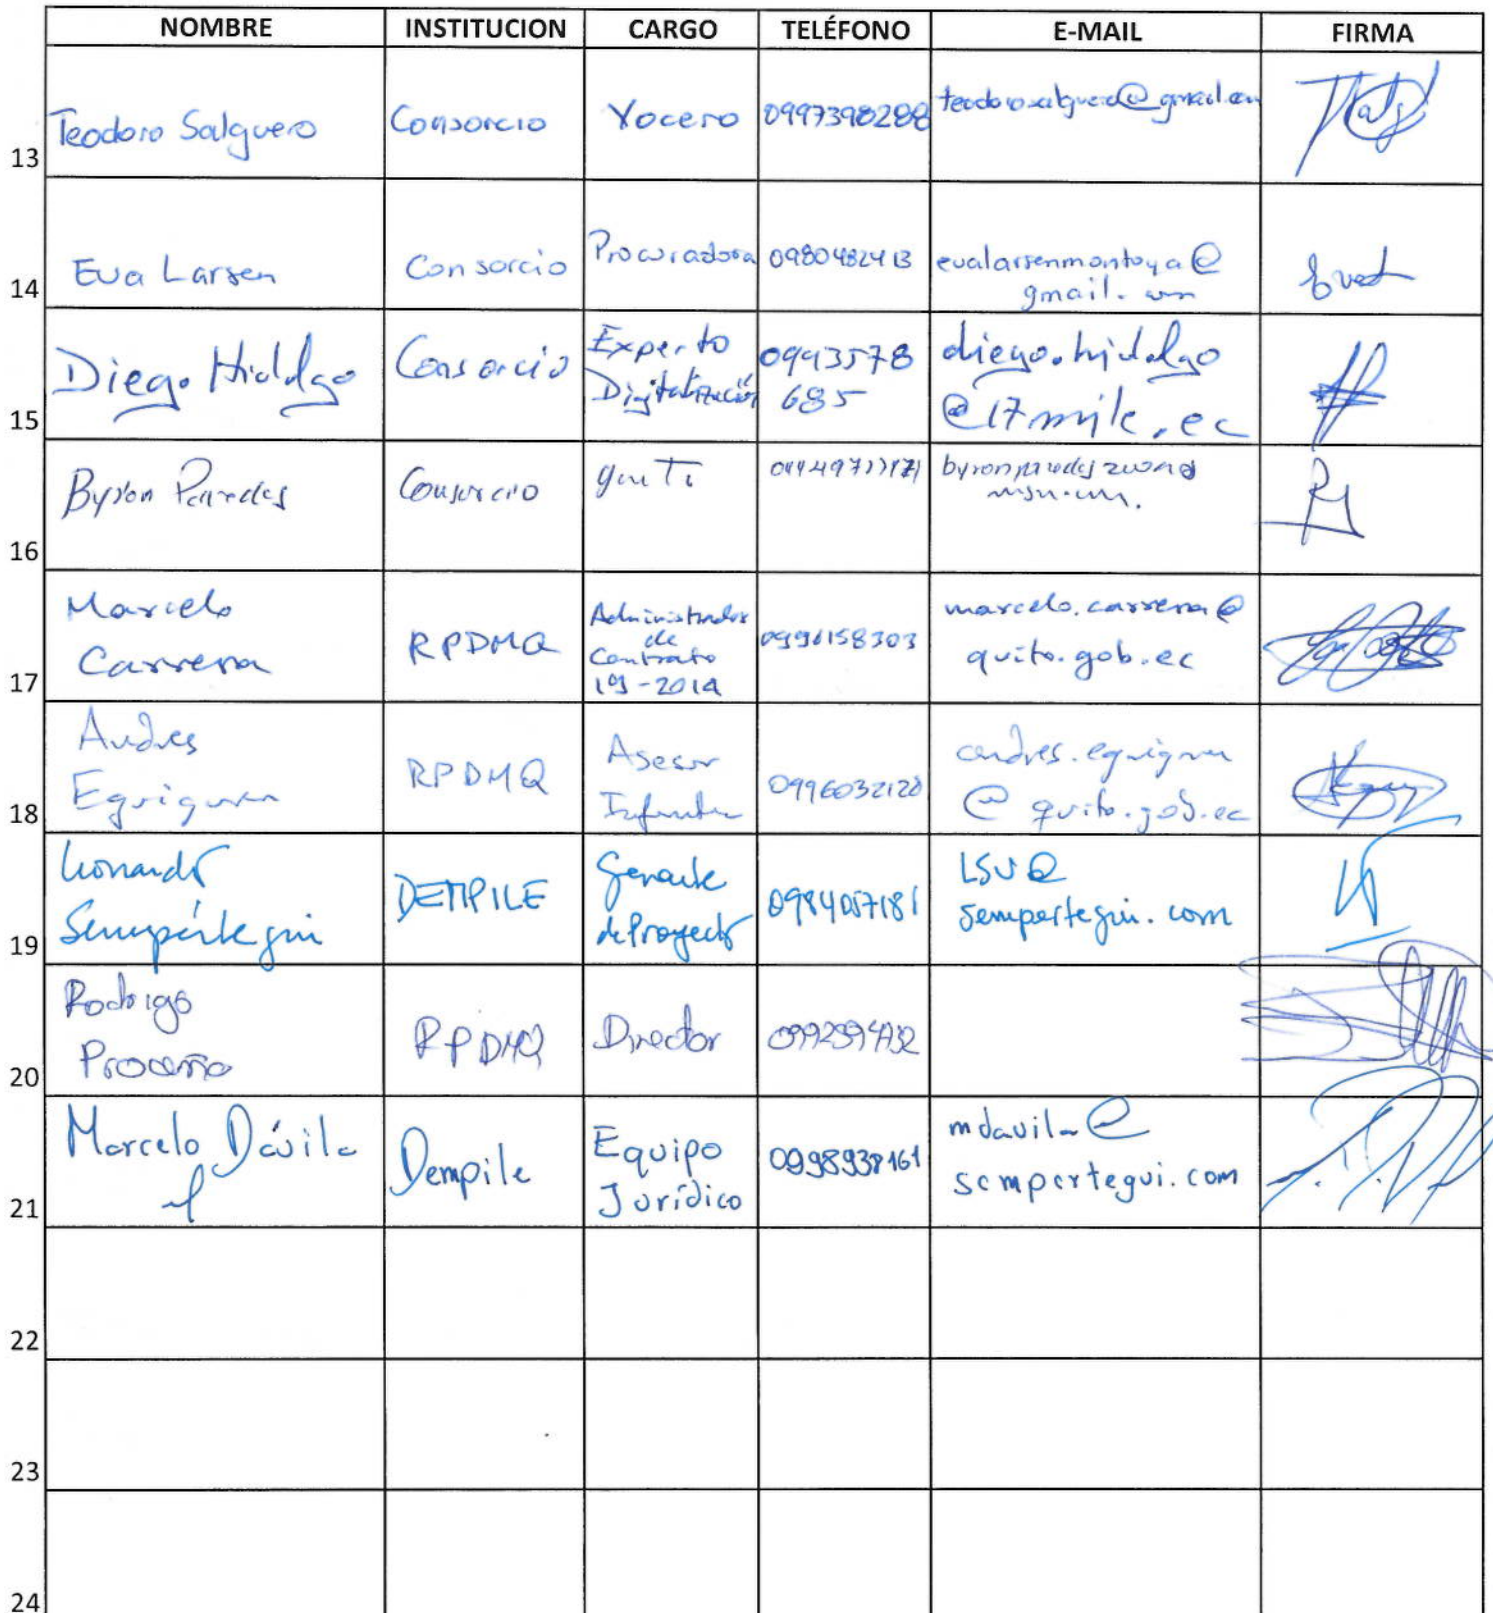 NOMBRE INSTITUCION CARGO TELÉFONO E-MAIL FIRMA
13 Teodoro Salguero Consorcio Vocero 0997398288 teodorosalguero@gmail.com
14 Eva Larsen Consorcio Procuradora 0980482413 evalarsenmontoya@
gmail.com
15 Diego Hidalgo Consorcio Experto
Digitalización 0993578
685 diego.hidalgo
@17mile.ec
16 Byron Paredes Consorcio
msn.com.
17 Marcelo
Carrera RPDMQ Administrador
de
Contrato
19-2014 0996158303 marcelo.carrera@
quito.gob.ec
18 Andres
Eguiguren RPDMQ Asesor 0996032120 andres.eguiguren
@quito.gob.ec
19 Leonardo
Sempértegui DEMPILE Gerente
de Proyecto 0984057181 LSV@
sempertegui.com
20 Rodrigo
Proceño RPDMQ Director
21 Marcelo Dávila Dempile Equipo
Jurídico 0998938161 mdavila@
sempertegui.com
22
23
24